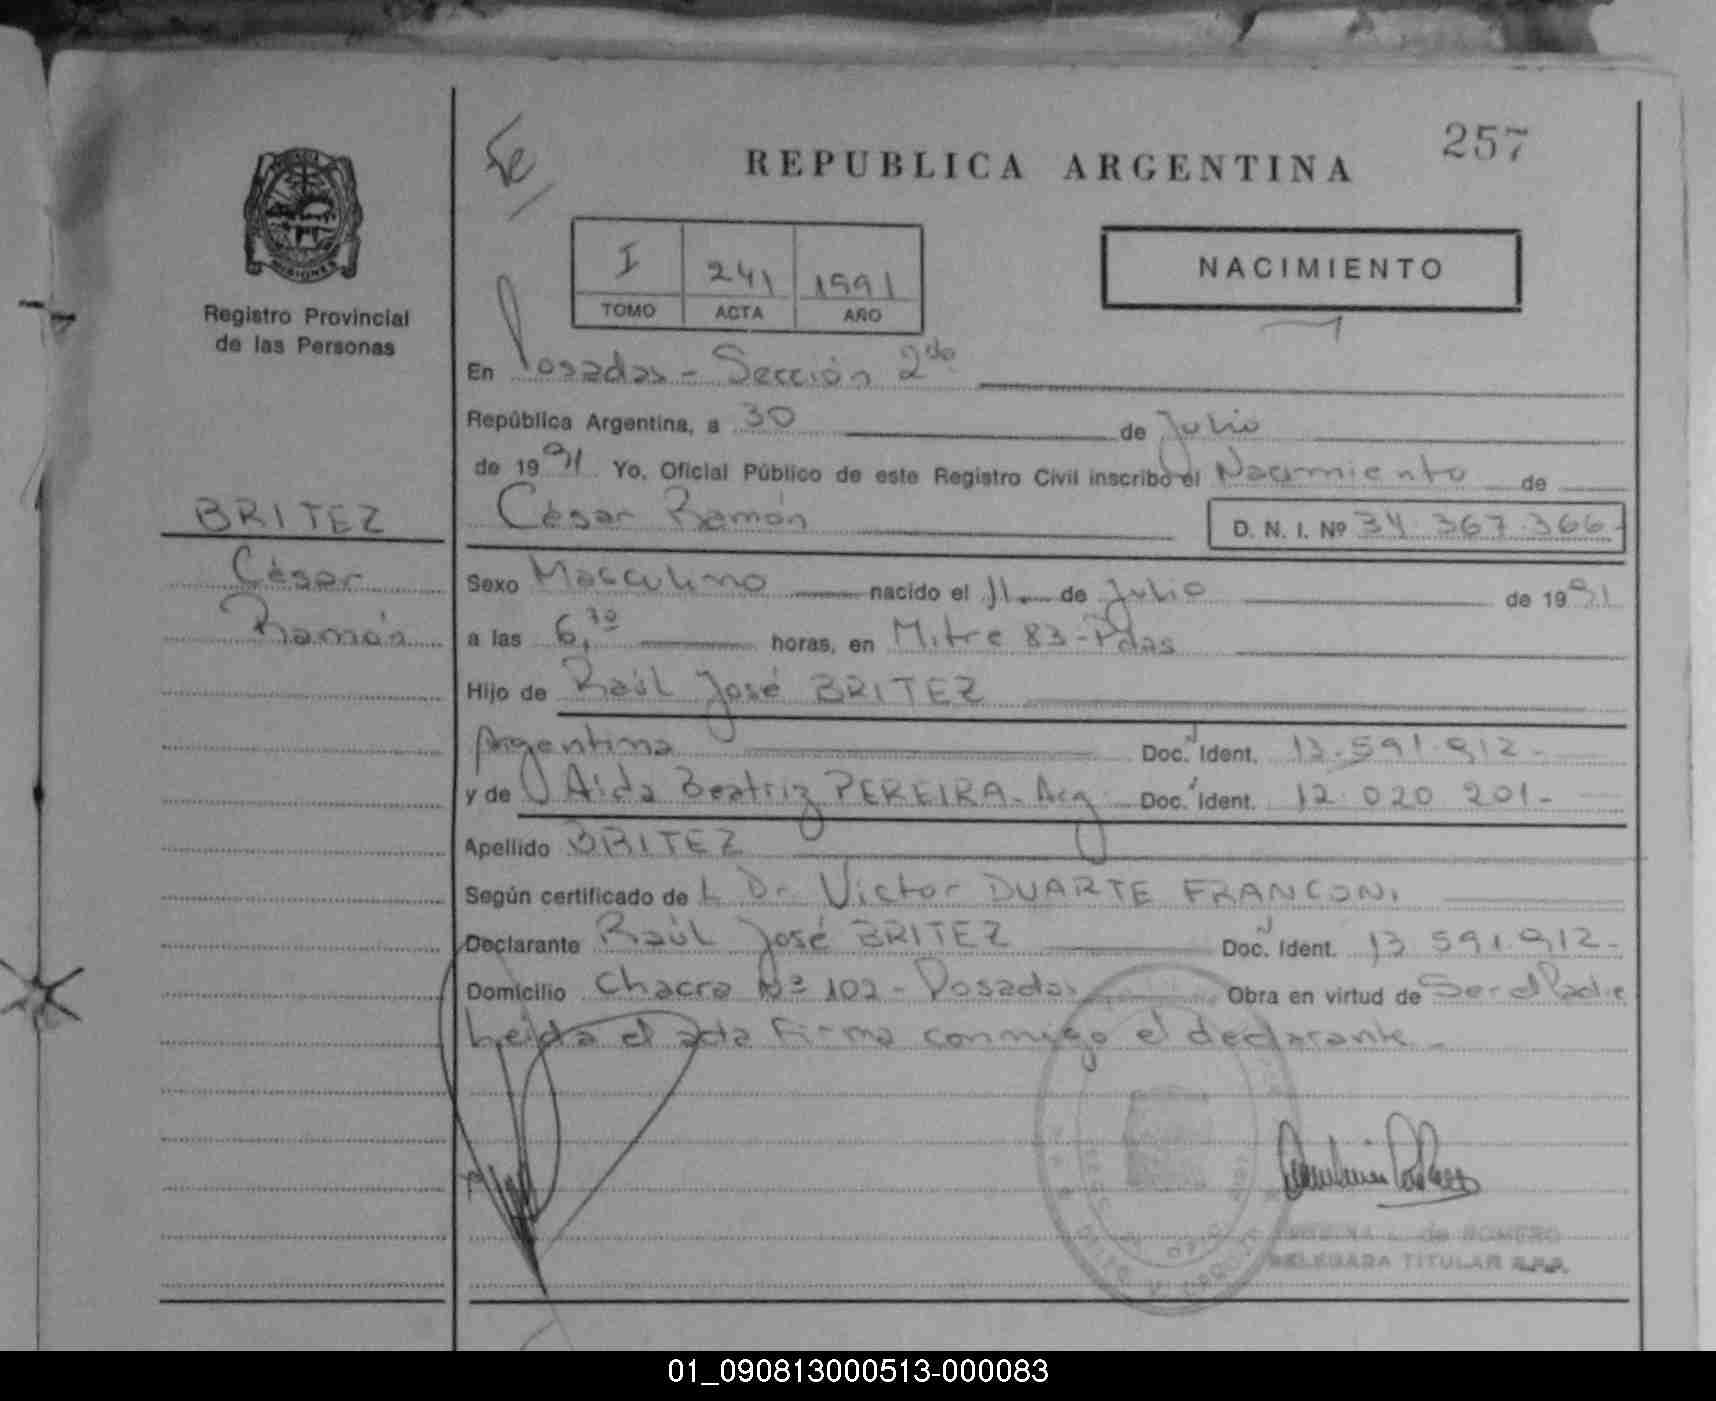 257
REPUBLICA ARGENTINA
NACIMIENTO
I 241 1991
TOMO ACTA AÑO
MISIONES
Registro Provincial
de las Personas
En Posadas - Sección 2da
República Argentina, a 30 de Julio
de 1991 Yo, Oficial Público de este Registro Civil inscribo el Nacimiento de
BRITEZ
César Ramón D. N. I. Nº 34.367.366-
César
Ramón
Sexo Masculino nacido el 11 de Julio de 1991
a las 6,30 horas, en Mitre 83-Pdas
Hijo de Raúl José BRITEZ
Argentina Doc. Ident. 13.591.912-
y de Aida Beatriz PEREIRA-Arg Doc. Ident. 12.020 201-
Apellido BRITEZ
Según certificado de L Dr. Victor DUARTE FRANCONI
Declarante Raúl José BRITEZ Doc. Ident. 13 591.912-
Domicilio Chacra Nº 102 - Posadas Obra en virtud de Ser el Padre
Leída el acta Firma conmigo el declarante-
L. de ROMERO
DELEGADA TITULAR R.P.P.
01_090813000513-000083